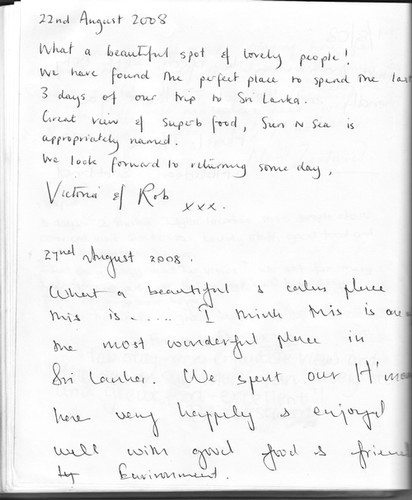 22nd August 2008
What a beautiful spot & lovely people!
We have found the perfect place to spend the last
3 days of our trip to Sri Lanka.
Great view & superb food, Sun N Sea is
appropriately named.
We look forward to returning some day,
Victoria & Rob
xxx.
27nd August 2008.
What a beautiful & calm place
this is ..... I think this is one
the most wonderful place in
Sri Lanka. We spent our H'moon
here very happily & enjoyed
well with good food & friend
Environment.